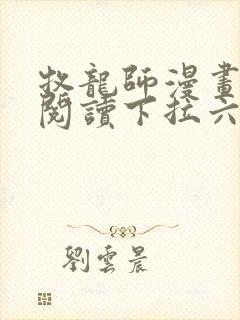 牧龍師漫畫
閱讀下拉六
劉雲晨